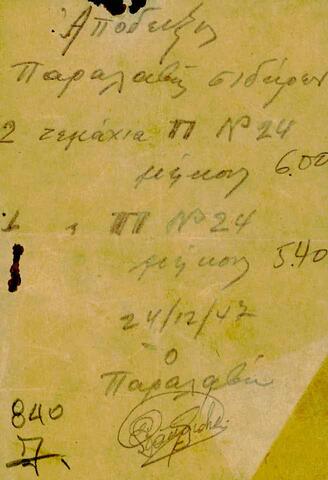 Απόδειξις
Παραλαβής σιδήρων
2 τεμάχια Π Nº 24
μήκους 6.00
1 " Π Nº 24
μήκους 5.40
24/12/47
Ο
Παραλαβών
840
7